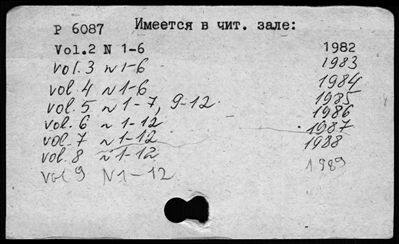 Р 6087 Имеется в чит. зале:
Vol.2 N 1-6 1982
vol.3 N 1-6 1983
vol. 4 N 1-6 1984
vol. 5 N 1-7, 9-12 1985
vol. 6 N 1-12 1986
vol. 7 N 1-12 1987
vol. 8 N 1-12 1988
vol 9 N 1-12 1989